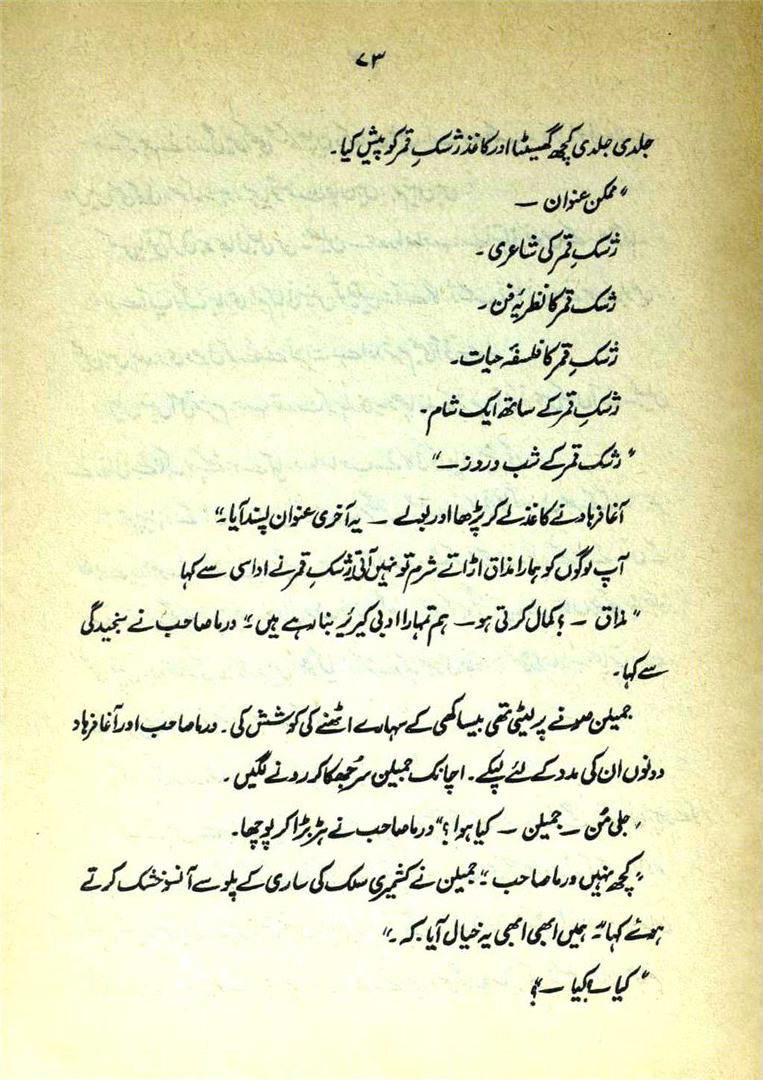 ۷۳
جلدی جلدی کچھ گھسیٹا اور کاغذ رشکِ قمر کو پیش کیا۔
"ممکن عنوان —
رشکِ قمر کی شاعری۔
رشکِ قمر کا نظریۂ فن۔
رشکِ قمر کا فلسفۂ حیات۔
رشکِ قمر کے ساتھ ایک شام۔
"رشکِ قمر کے شب و روز —"
آغا فرہاد نے کاغذ لے کر پڑھا اور بولے — یہ آخری عنوان پسند آیا۔"
آپ لوگوں کو ہمارا مذاق اڑاتے شرم تو نہیں آتی رشکِ قمر نے اداسی سے کہا
"مذاق — ؟ کمال کرتی ہو — ہم تمہارا ادبی کیریر بنا رہے ہیں۔" ورما صاحب نے سنجیدگی
سے کہا۔
جمیلن صوفے پر لیٹی تھی بیساکھی کے سہارے اٹھنے کی کوشش کی۔ ورما صاحب اور آغا فرہاد
دونوں ان کی مدد کے لئے لپکے۔ اچانک جمیلن سر جھکا کر رونے لگیں۔
"جلی مُن — جمیلن — کیا ہوا؟" ورما صاحب نے ہڑبڑا کر پوچھا۔
"کچھ نہیں ورما صاحب۔" جمیلن نے کشمیری سلک کی ساری کے پلو سے آنسو خشک کرتے
ہوئے کہا۔" ہمیں ابھی ابھی یہ خیال آیا کہ۔"
"کیا — ؟ کیا — ؟"